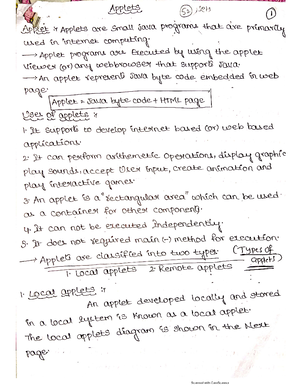 Applets
①
Applet :- Applets are small Java programs that are primarily
used in internet computing.
→ Applet programs are Executed by using the applet
Viewer (or) any webbrowser that supports Java.
→ An applet represent Java byte code embedded in web
page.
Applet = Java byte code + HTML page
Uses of applets :-
1. It supports to develop internet based (or) web based
applications.
2. It can perform arithmetic operations, display graphic
play sounds, accept user input, create animation and
play interactive games.
3. An applet is a "rectangular area" which can be used
as a container for other component.
4. It can not be executed Independently.
5. It does not required main() method for execution.
→ Applets are classified into two types (Types of
applets)
1. Local applets 2. Remote applets
1. Local applets :-
An applet developed locally and stored
in a local system is known as a local applet.
The local applets diagram is shown in the Next
page.
Scanned with CamScanner